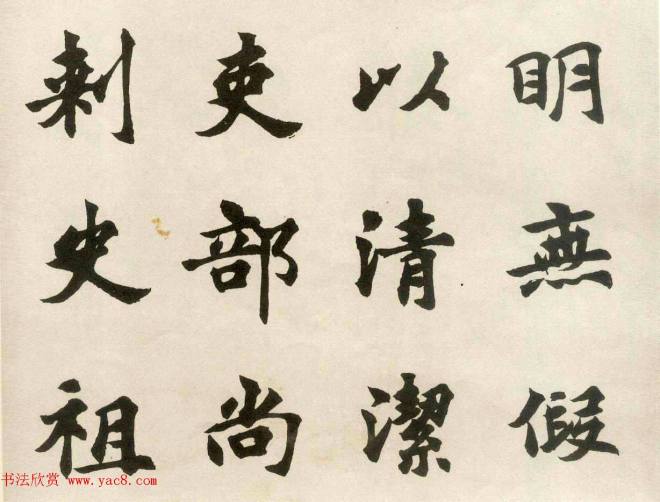 明無假
以清潔
吏部尚
刺史祖
书法欣赏 www.yac8.com